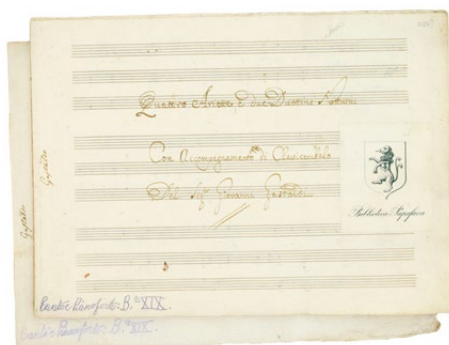 Quattro Ariette, e due Duettini Notturni
Con Accompagnamento di Clavicembalo
Del Sig.r Giovanni Gastaldi
Biblioteca Papafava
Canto e Pianoforte: B.a XIX.
Canto e Pianoforte: B.a XIX.